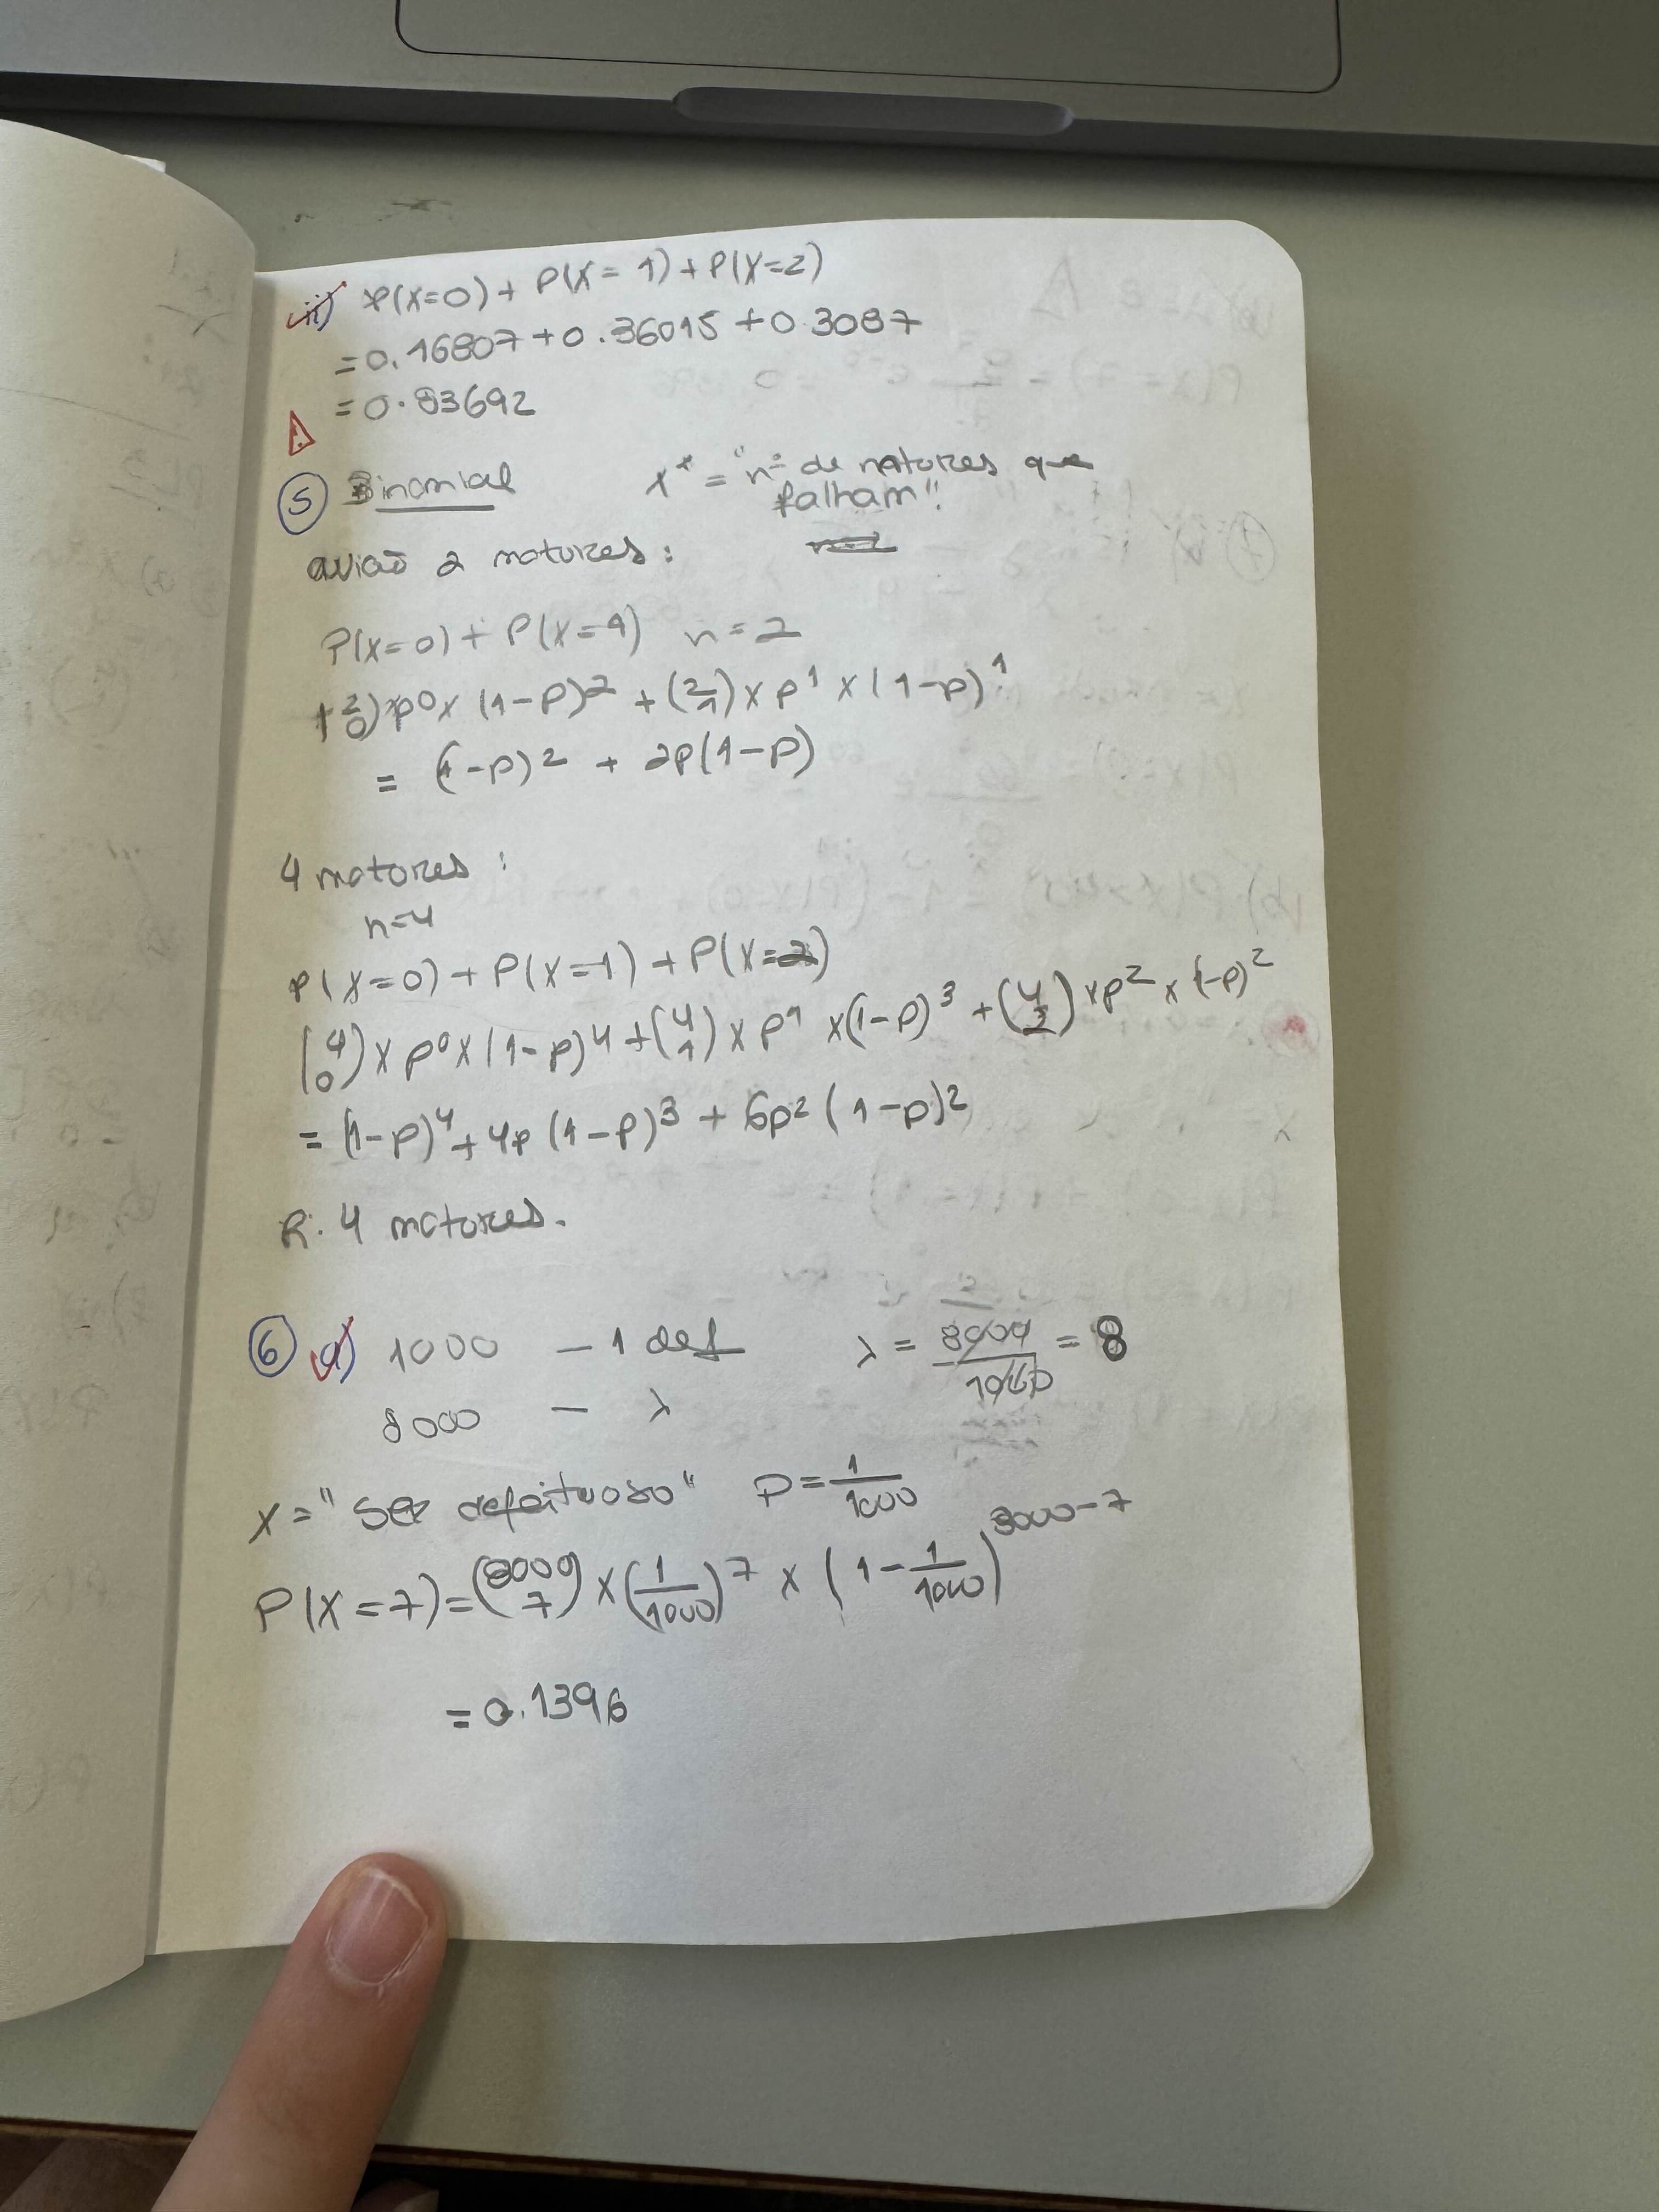 iii) P(X=0) + P(X=1) + P(X=2)
= 0.16807 + 0.36015 + 0.3087
= 0.83692
5 Binomial X = "nº de motores que
falham"
avião 2 motores:
P(X=0) + P(X=1) n=2
(2 0) × p^0 × (1-p)^2 + (2 1) × p^1 × (1-p)^1
= (1-p)^2 + 2p(1-p)
4 motores:
n=4
P(X=0) + P(X=1) + P(X=2)
(4 0) × p^0 × (1-p)^4 + (4 1) × p^1 × (1-p)^3 + (4 2) × p^2 × (1-p)^2
= (1-p)^4 + 4p (1-p)^3 + 6p^2 (1-p)^2
R: 4 motores.
6 a) 1000 — 1 def λ = 8000/1000 = 8
8000 — λ
X = "ser defeituoso" P = 1/1000
P(X=7) = (8000 7) × (1/1000)^7 × (1 - 1/1000)^8000-7
= 0.1396